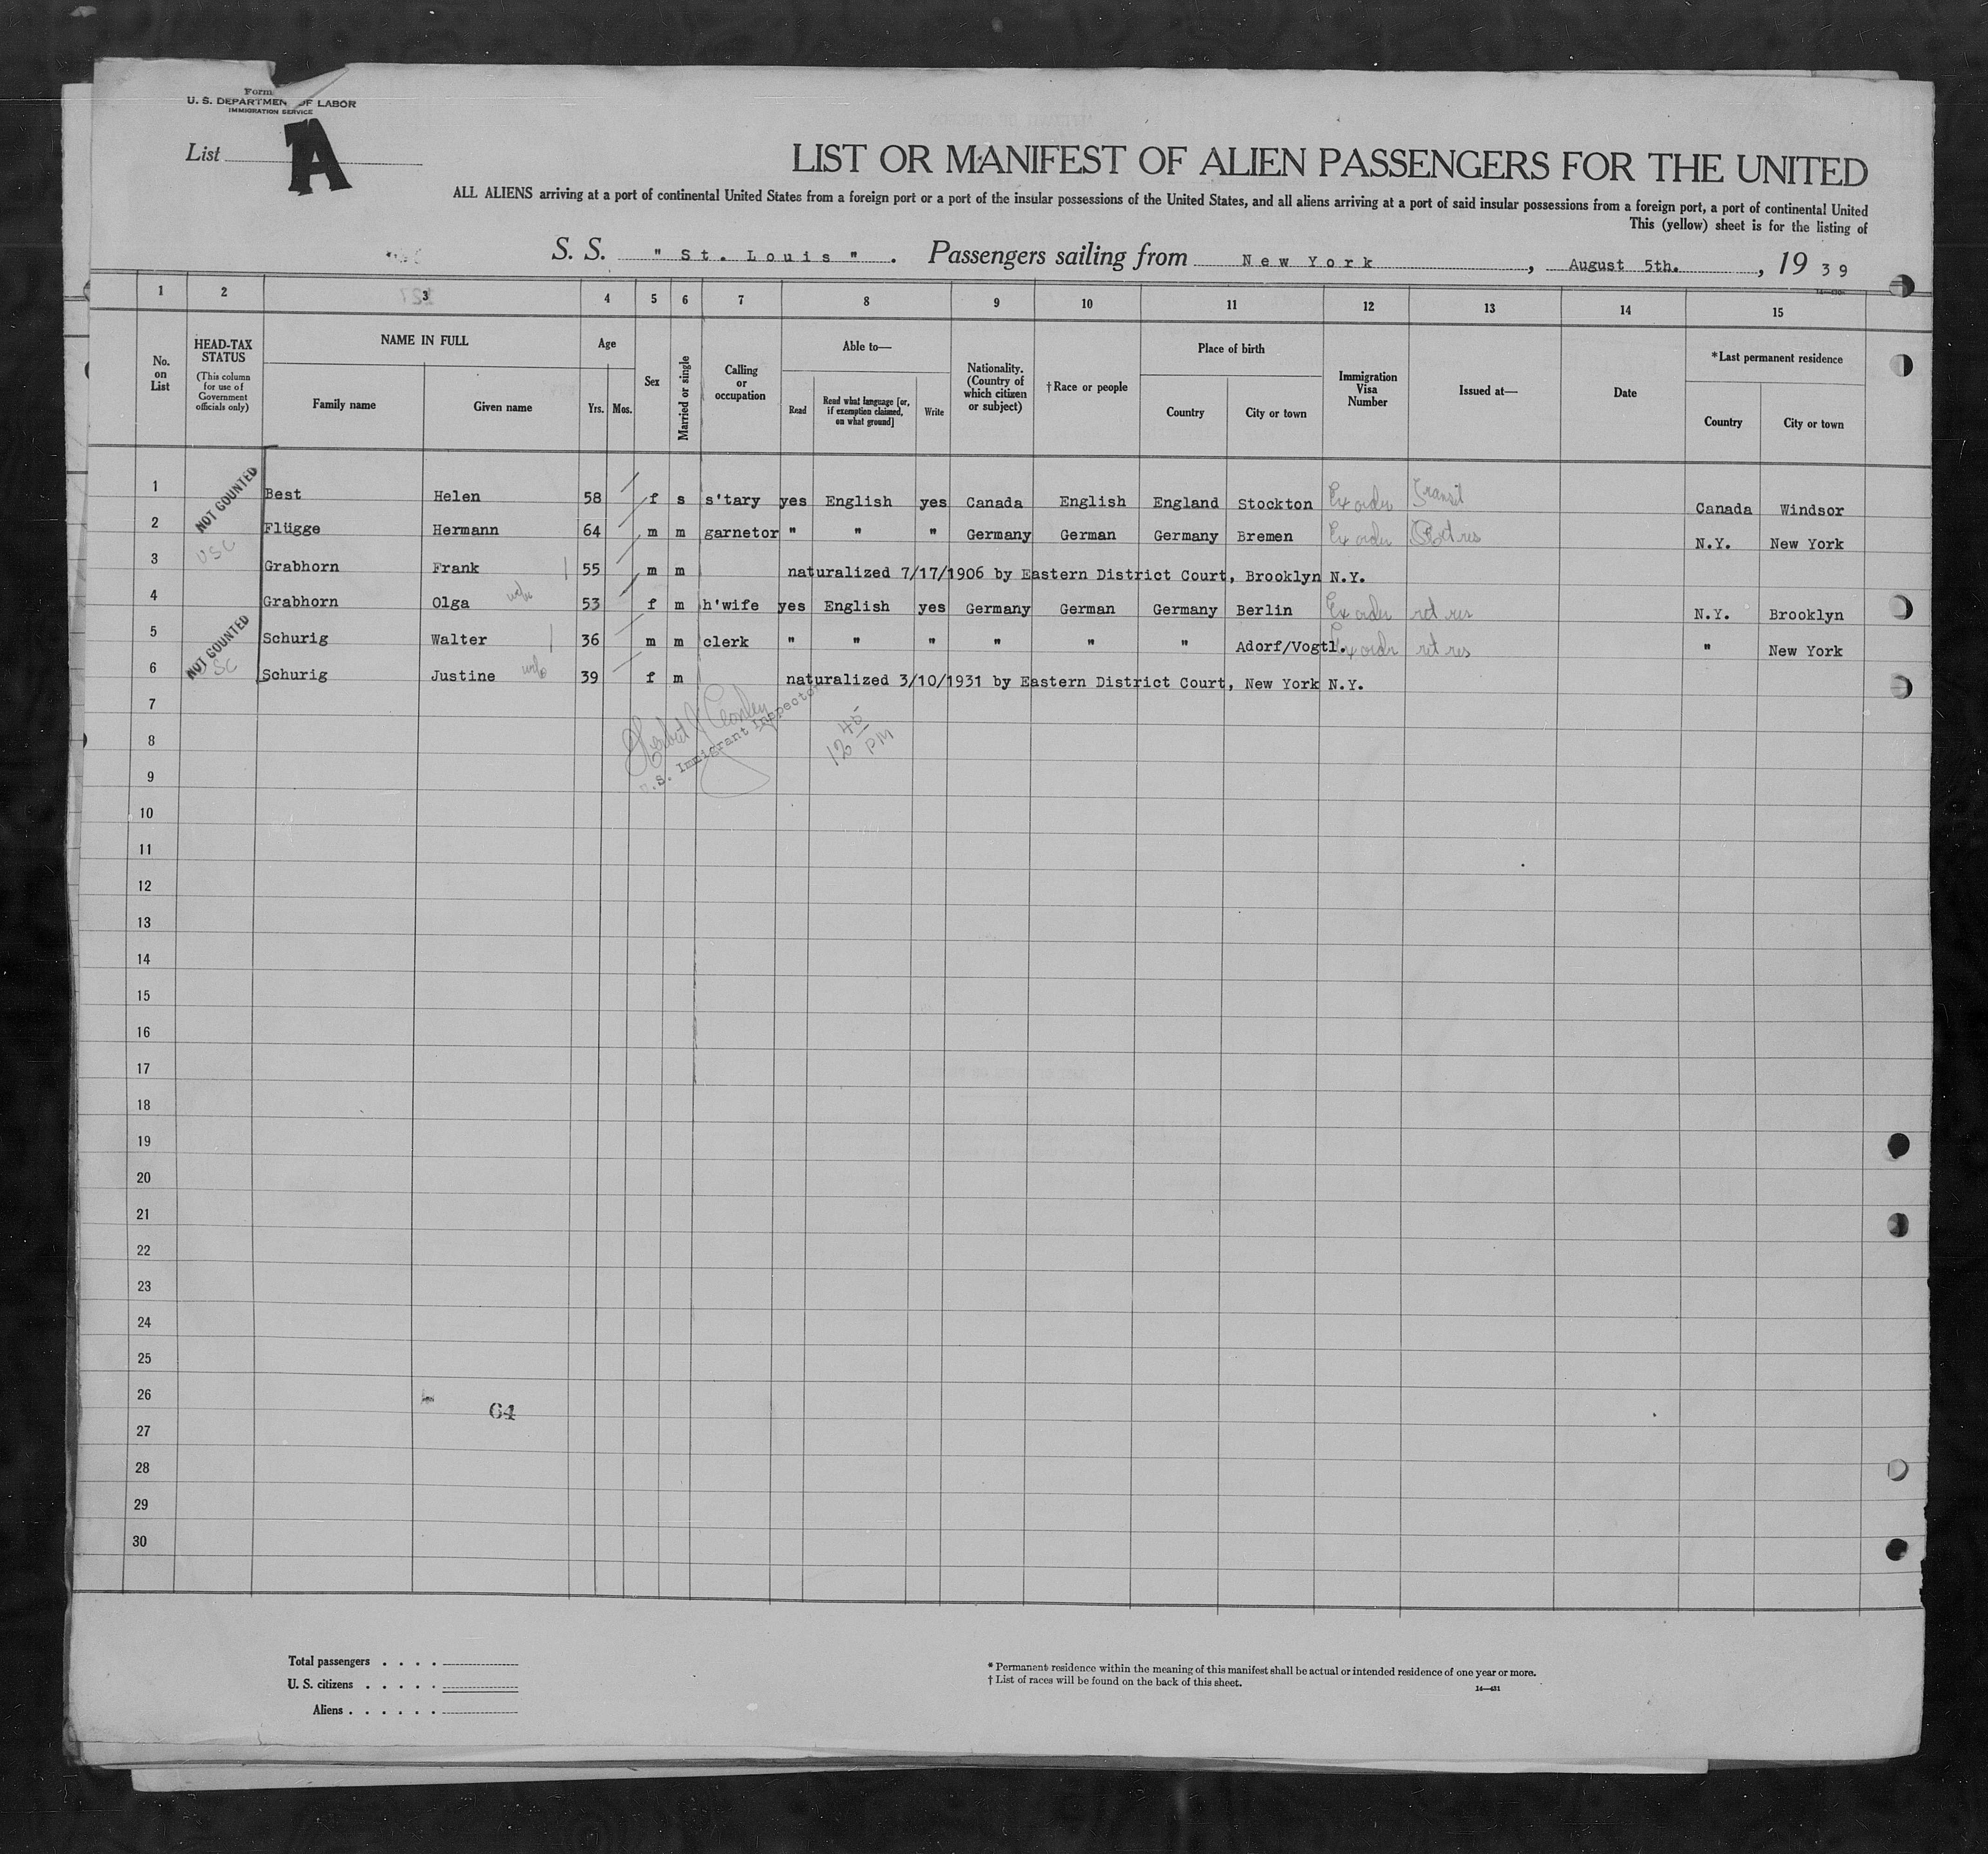 Form
U. S. DEPARTMEN OF LABOR
IMMIGRATION SERVICE
List A
LIST OR MANIFEST OF ALIEN PASSENGERS FOR THE UNITED
ALL ALIENS arriving at a port of continental United States from a foreign port or a port of the insular possessions of the United States, and all aliens arriving at a port of said insular possessions from a foreign port, a port of continental United
This (yellow) sheet is for the listing of
S. S. " St. Louis " . Passengers sailing from New York , August 5th. , 19 39
1 2 3 4 5 6 7 8 9 10 11 12 13 14 15
No. on List
HEAD-TAX STATUS (This column for use of Government officials only)
NAME IN FULL
Family name Given name
Age
Yrs. Mos.
Sex
Married or single
Calling or occupation
Able to—
Read Read what language [or, if exemption claimed, on what ground] Write
Nationality. (Country of which citizen or subject)
† Race or people
Place of birth
Country City or town
Immigration Visa Number
Issued at—
Date
*Last permanent residence
Country City or town
NOT COUNTED
1 Best Helen 58 f s s'tary yes English yes Canada English England Stockton Ex order Transit Canada Windsor
2 Flügge Hermann 64 m m garnetor " " " Germany German Germany Bremen Ex order Ret res N.Y. New York
USC
3 Grabhorn Frank 55 m m naturalized 7/17/1906 by Eastern District Court, Brooklyn N.Y.
4 Grabhorn Olga wife 53 f m h'wife yes English yes Germany German Germany Berlin Ex order ret res N.Y. Brooklyn
NOT COUNTED
5 Schurig Walter 36 m m clerk " " " " " " Adorf/Vogtl. Ex order ret res " New York
USC
6 Schurig Justine wife 39 f m naturalized 3/10/1931 by Eastern District Court, New York N.Y.
7
U.S. Immigrant Inspector
12 45 PM
8
9
10
11
12
13
14
15
16
17
18
19
20
21
22
23
24
25
26
64
27
28
29
30
Total passengers . . . .
U. S. citizens . . . . .
Aliens . . . . . .
* Permanent residence within the meaning of this manifest shall be actual or intended residence of one year or more.
† List of races will be found on the back of this sheet.
14—431